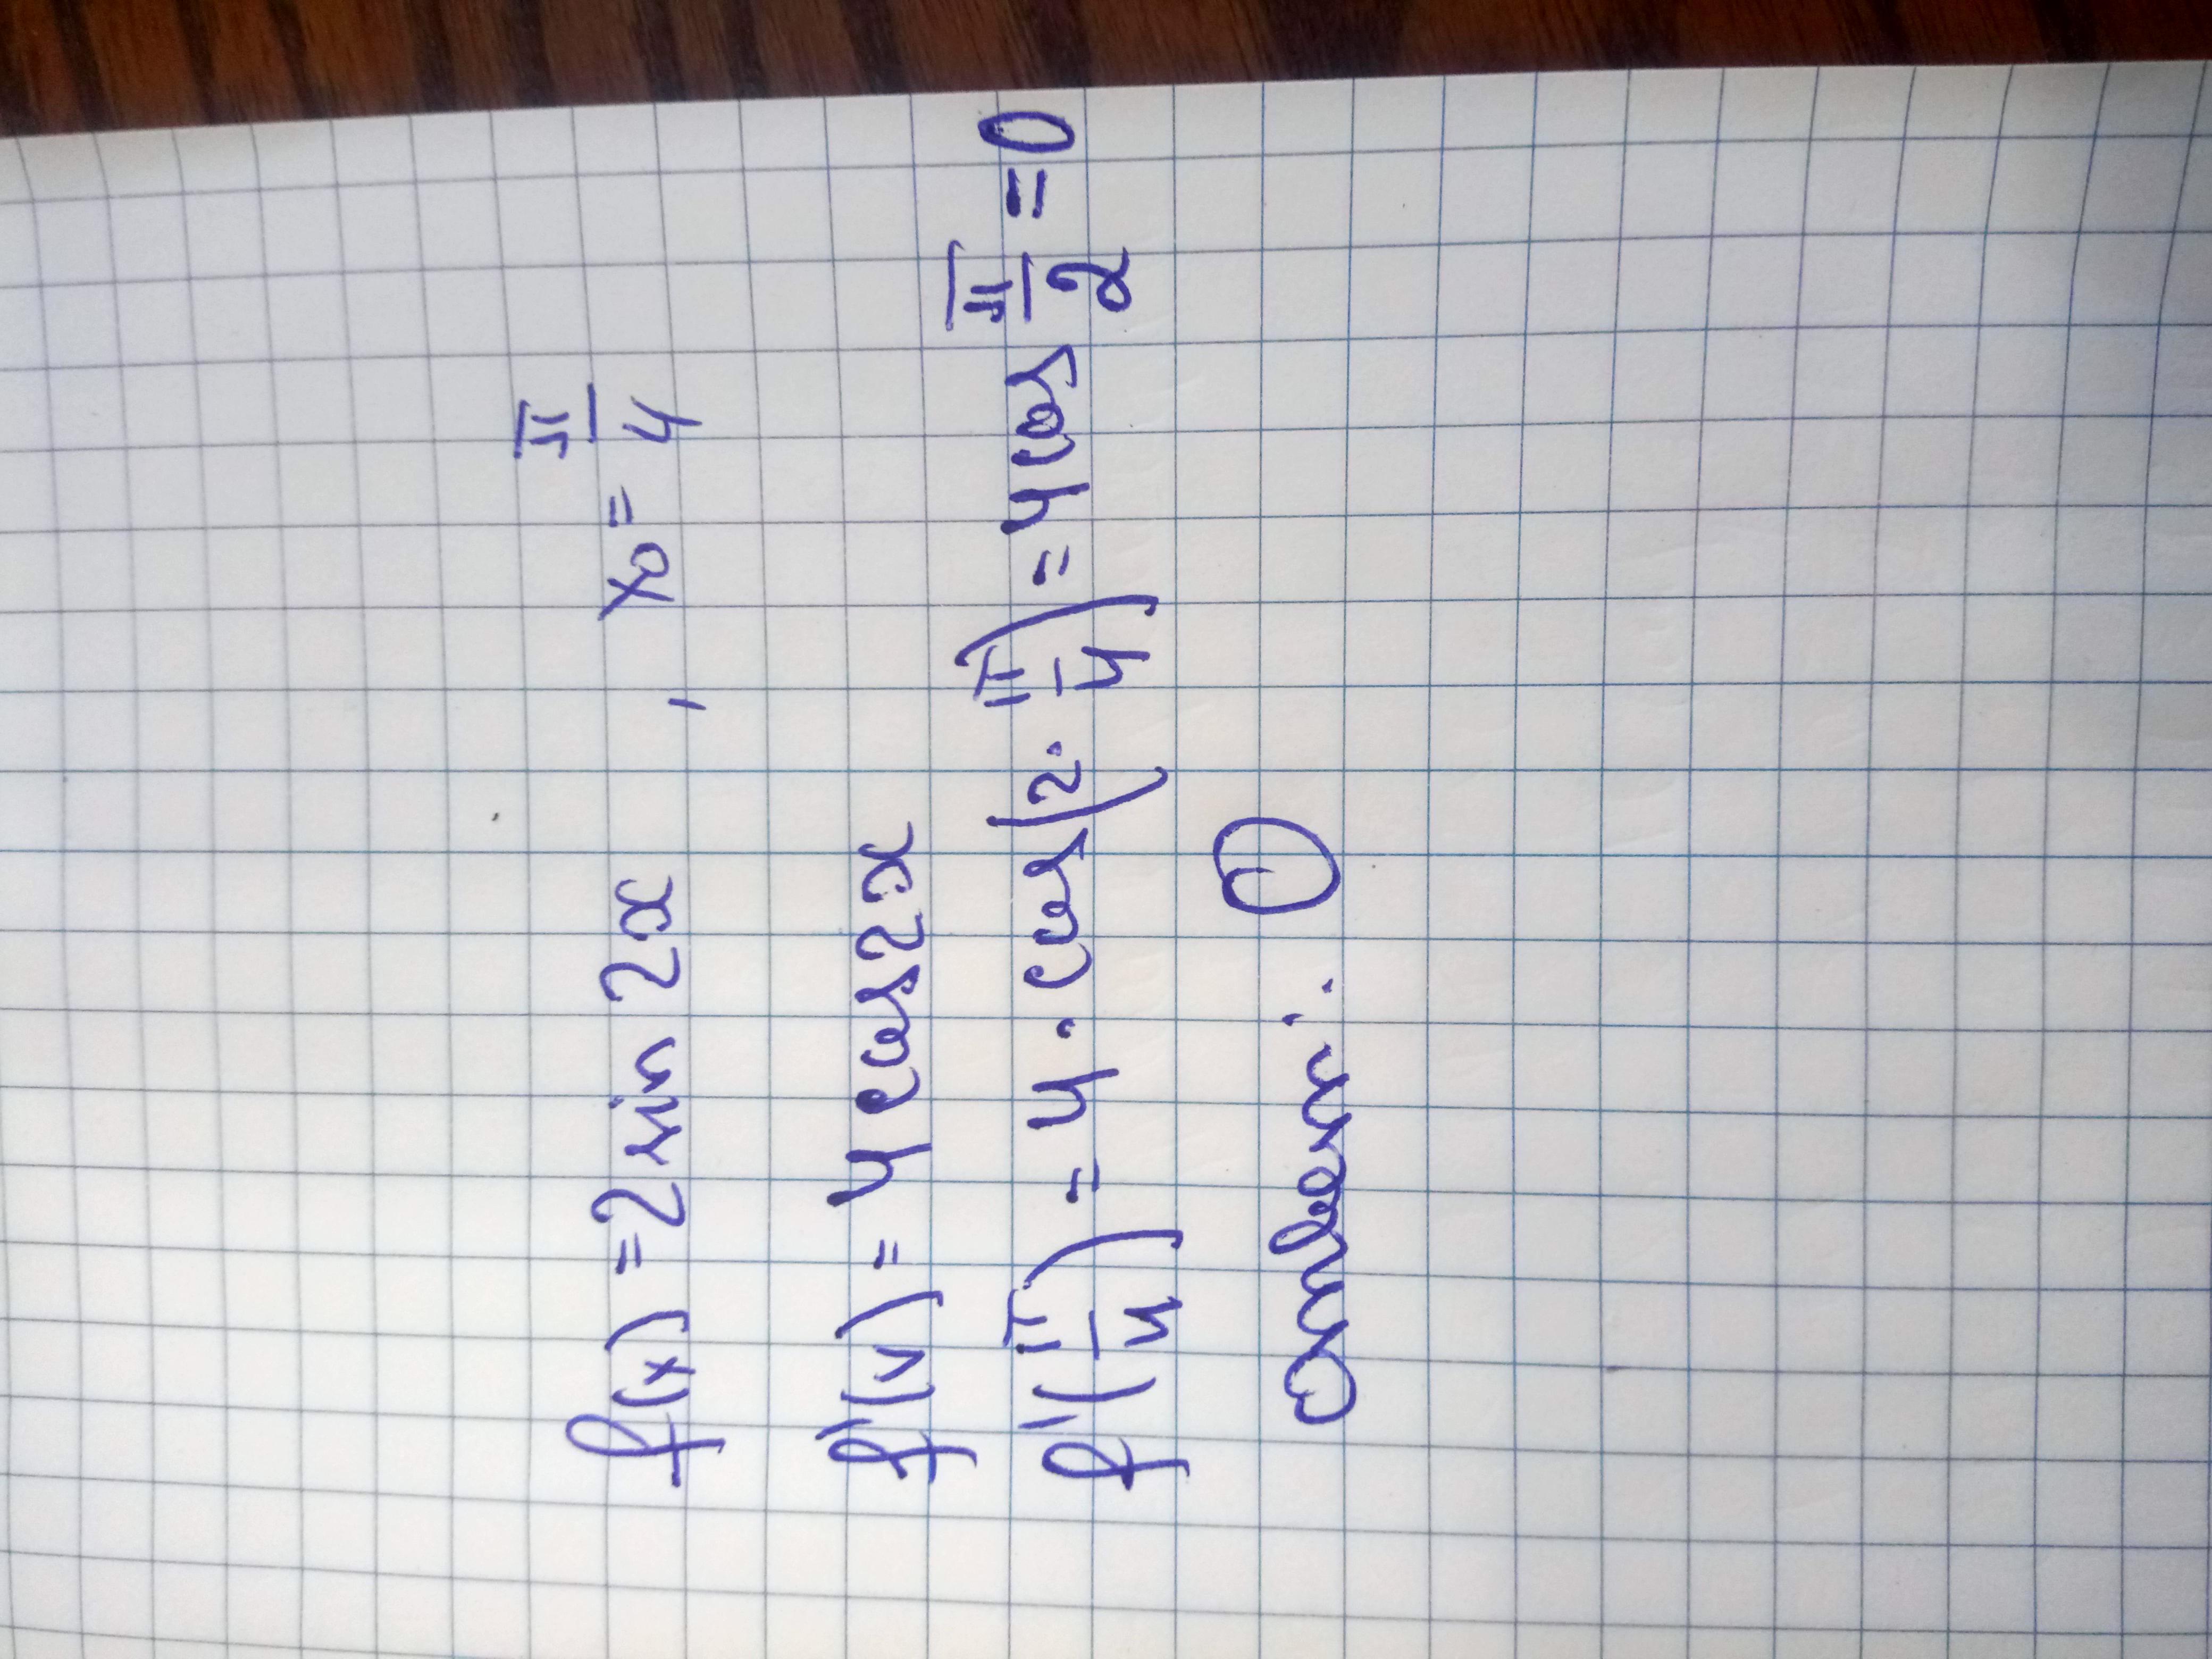 f(x) = 2 sin 2x , x₀ = π/4
f'(x) = 4 cos 2x
f'(π/4) = 4 · cos(2 · π/4) = 4 cos π/2 = 0
Ответ: 0